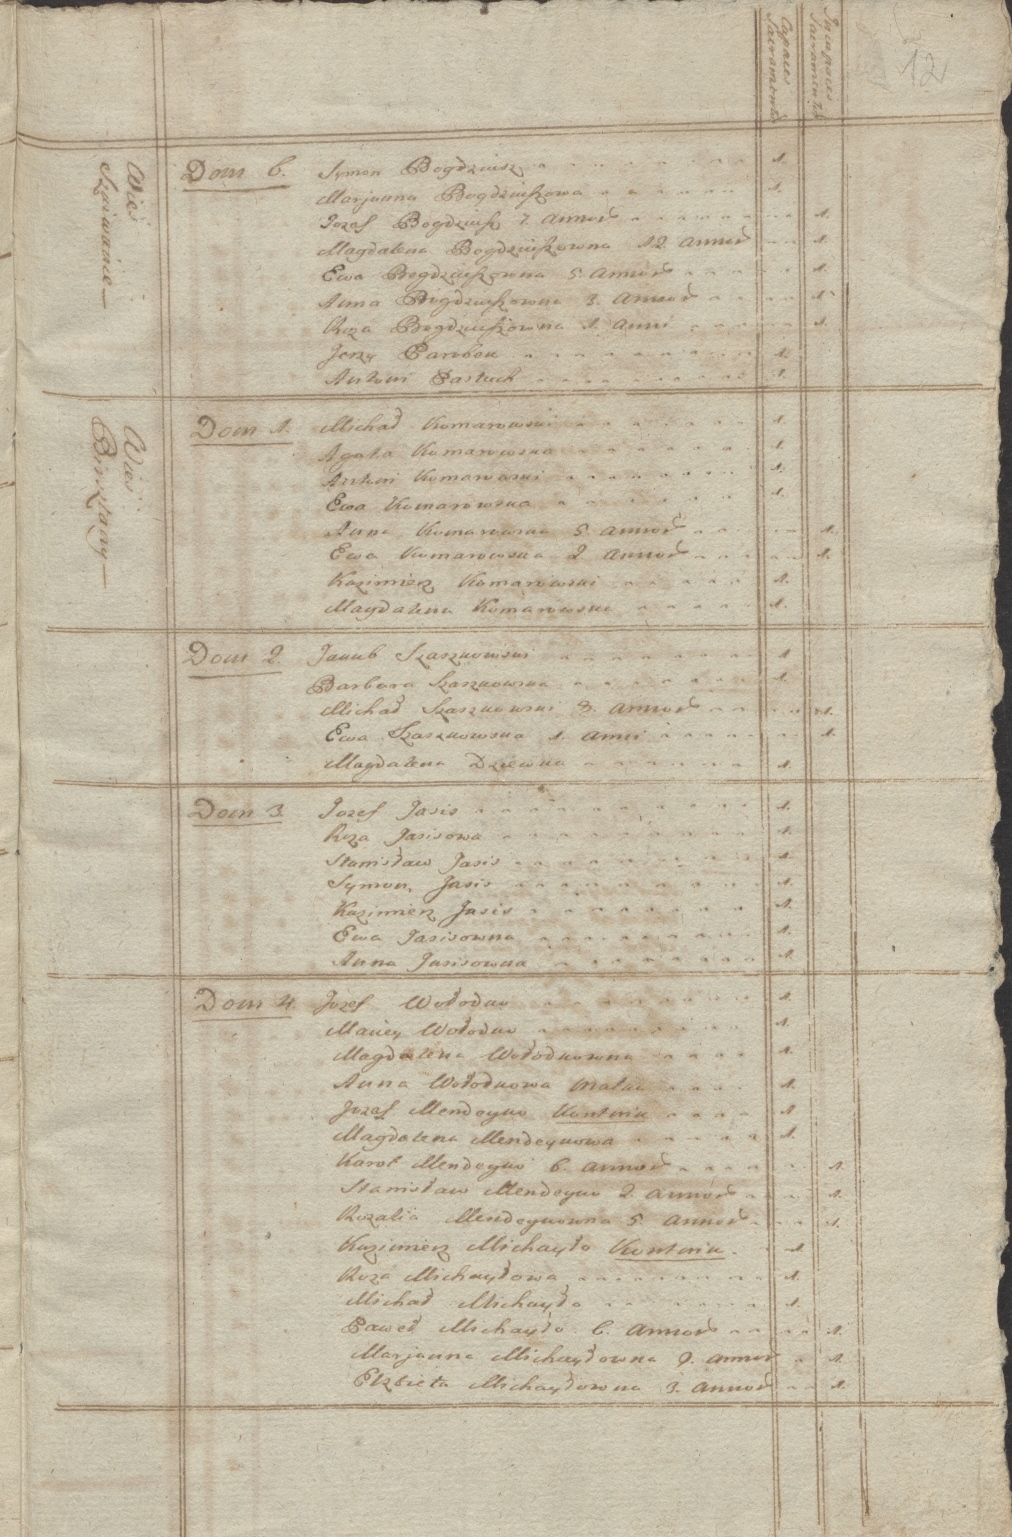 12
Capaces Sacramenti
Incapaces Sacramenti
Wieś
Dom 6. Symon Bogdziusz 1.
Marjanna Bogdziuszowa 1.
Jozef Bogdziusz 7. annor 1.
Magdalena Bogdziuszowna 12 annor 1.
Ewa Bogdziuszowna 5. annor 1.
Anna Bogdziuszowna 3. annor 1.
Roza Bogdziuszowna 1. anni 1.
Jerzy Parobek 1.
Antoni Pastuch 1.
Wieś Binsztany
Dom 1. Michał Komarowski 1.
Agata Komarowska 1
Antoni Komarowski 1.
Ewa Komarowska 1.
Anna Komarowska 5 annor 1.
Ewa Komarowska 2 annor 1.
Kazimierz Komarowski 1.
Magdalena Komarowska 1.
Dom 2. Jakub Szaszkowski 1
Barbara Szaszkowska 1.
Michał Szaszkowski 3. annor 1.
Ewa Szaszkowska 1. anni 1.
Magdalena Dziewka 1.
Dom 3 Jozef Jasis 1.
Roza Jasisowa 1.
Stanisław Jasis 1.
Symon Jasis 1.
Kazimierz Jasis 1.
Ewa Jasisowna 1.
Anna Jasisowna 1.
Dom 4. Jozef Wołodko 1.
Maciey Wołodko 1.
Magdalena Wołodkowna 1.
Anna Wołodkowa Matka 1.
Jozef Mendeyko Kontnik 1
Magdalena Mendeykowa 1.
Karol Mendeyko 6. annor 1.
Stanisław Mendeyko 2. annor 1.
Rozalia Mendeykowna 5 annor 1.
Kazimierz Michayło Kontnik 1.
Roza Michayłowa 1.
Michał Michayło 1.
Paweł Michayło 6. annor 1.
Marjanna Michayłowna 9. annor 1.
Elzbieta Michayłowna 3. annor 1.